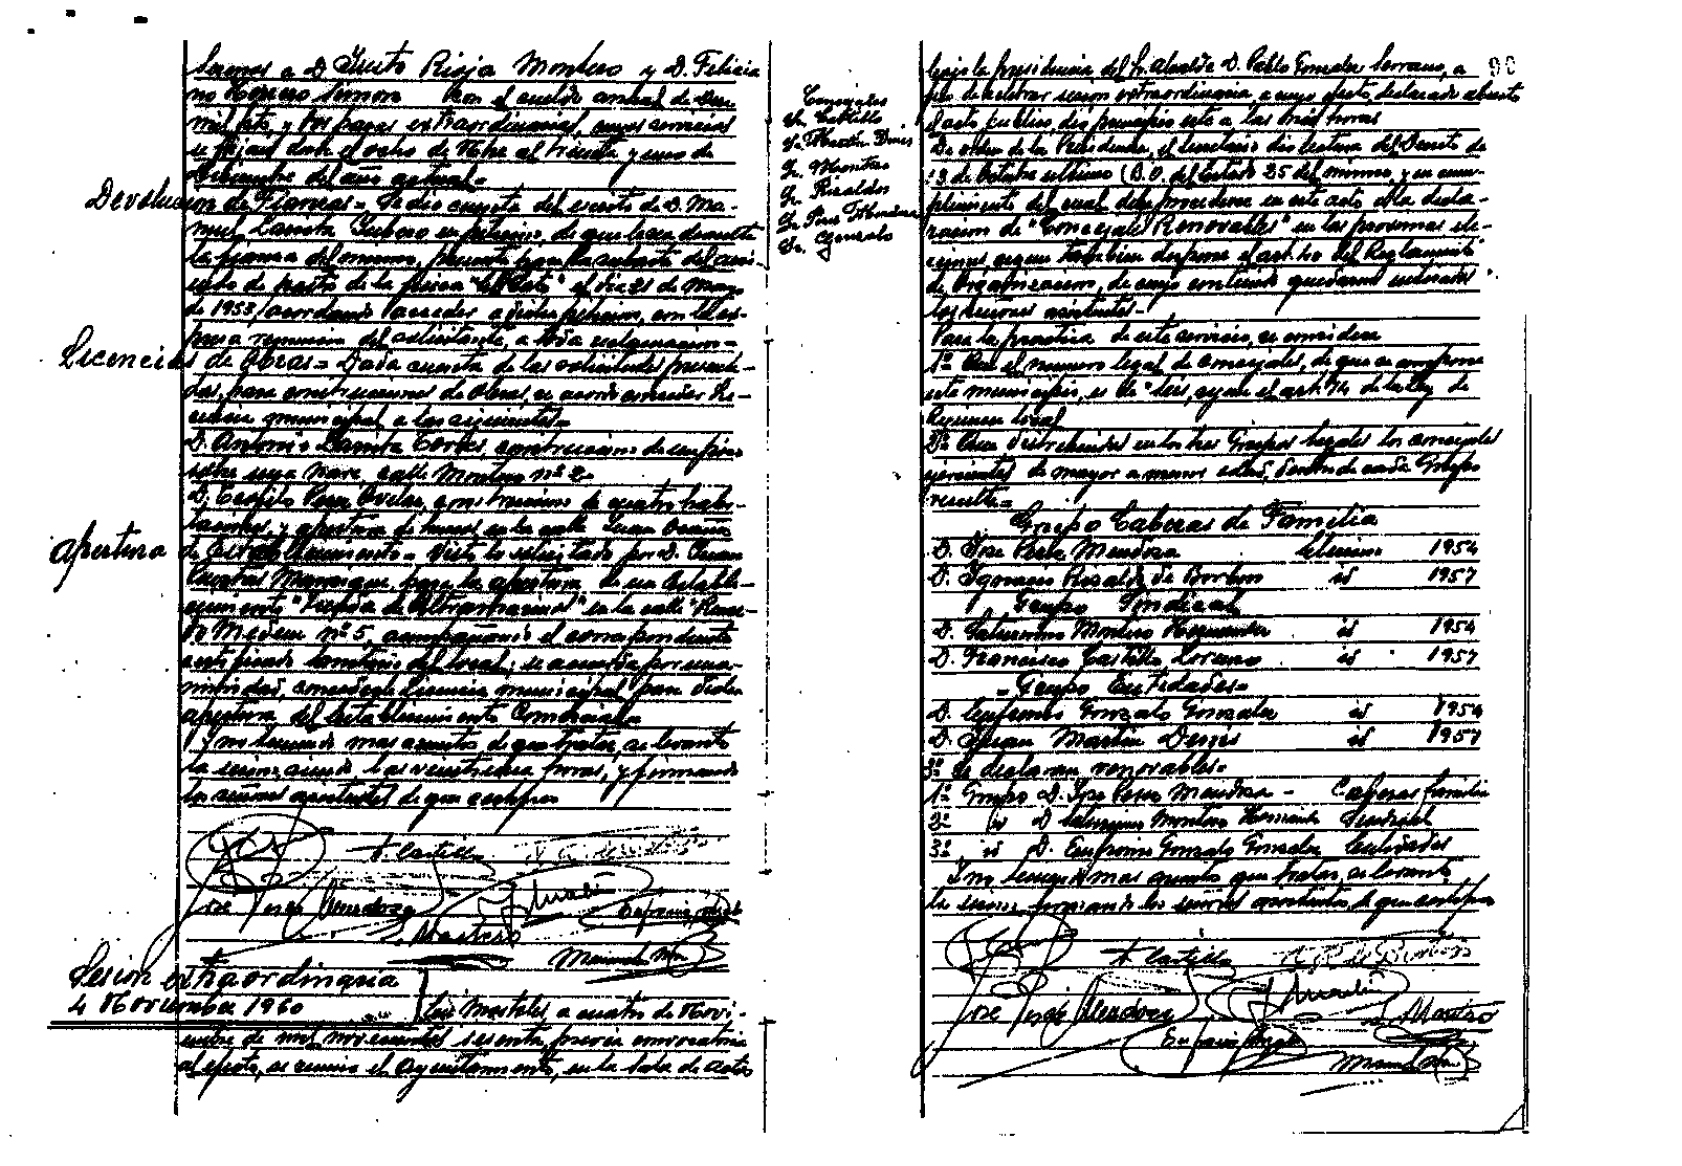 Serenos a D. Justo Rioja Montero y D. Felicia
no Herrero Simon con el sueldo anual de
mil pts, y dos pagas extraordinarias, cuyos servicios
se fijan desde el ocho de Nbre al treinta y uno de
Diciembre del año actual=
Devolucion de Fianzas= Se dio cuenta del escrito de D. Ma-
nuel en peticion, de que le sea devuelta
la fianza del mismo, para la subasta del
de pastos de la finca "El " el dia 21 de Mayo
de 1953, acordando acceder a dicha peticion, con la ex-
presa renuncia del solicitante, a toda reclamacion=
Licencias de Obras= Dada cuenta de las solicitudes presenta-
das, para construcciones de Obras, se acordo conceder li-
cencia municipal a los siguientes=
D. Antonio Cortes, construccion de un piso
sobre una nave, calle nº 2-
D. Teofilo Perez, construccion de cuatro habi-
taciones, y apertura de huecos, en la calle Juan
apertura de Establecimiento= Visto lo solicitado por D. Juan
Manrique, para la apertura de un Estable-
cimiento "Tienda de Ultramarinos" en la calle
nº 5, acompañando el correspondiente
certificado Sanitario del local; se acuerda por una-
nimidad, concederle licencia municipal para dicha
apertura del Establecimiento Comercial=
Y no teniendo mas asuntos de que tratar, se levanto
la sesion, siendo las horas, y firmando
los señores asistentes de que certifico
F. Castillo
Jose Perez Mendoza J. Martin
Montero
Sesion extraordinaria
4 Noviembre 1960 En Mostoles, a cuatro de Novi-
embre de mil novecientos sesenta, previa convocatoria
al efecto, se reunio el Ayuntamiento, en la Sala de actos
Concejales
Sr. Castillo
Sr. Martin
Sr. Montero
Sr. Rizaldos
Sr. Perez Mendoza
Sr. Gonzalo
90
bajo la presidencia del Sr. Alcalde D. Pablo Gonzalez Serrano, a
fin de celebrar sesion extraordinaria, a cuyo efecto, declarado abierto
el acto publico, dio principio este a las horas
De orden de la Presidencia, el Secretario dio lectura del Decreto de
13 de Octubre ultimo (B.O. del Estado 25 del mismo, y en cum-
plimiento del cual debe procederse en este acto a la decla-
racion de "Concejales Renovables" en las proximas ele-
ciones, segun tambien dispone el art. del Reglamento
de Organizacion, de cuyo contenido quedaron enterados
los señores asistentes-
Para la practica de este servicio, se considera
1º Que el numero legal de concejales, de que se compone
este municipio, es de "seis, segun el art. 74 de la Ley de
Regimen local
2º Que distribuidos en los tres Grupos legales los concejales
ejercientes de mayor a menor edad, dentro de cada Grupo
resulta=
Grupo Cabezas de Familia
D. Jose Perez Mendoza Eleccion 1954
D. Ygnacio Rizaldos de Borbon id 1957
Grupo Sindical
D. Saturnino Montero Hernandez id 1954
D. Francisco Castillo Lorenzo id 1957
- Grupo Entidades=
D. Eufronio Gonzalo Gonzalez id 1954
D. Juan Martin id 1957
3º Se declaran renovables=
1º Grupo D. Jose Perez Mendoza - Cabezas familia
2º id D. Saturnino Montero Hernandez Sindical
3º id D. Eufronio Gonzalo Gonzalez Entidades
Y no teniendo mas asuntos que tratar, se levanto
la sesion, firmando los señores asistentes, de que certifico
F. Castillo
Jose Perez Mendoza J. Martin Montero